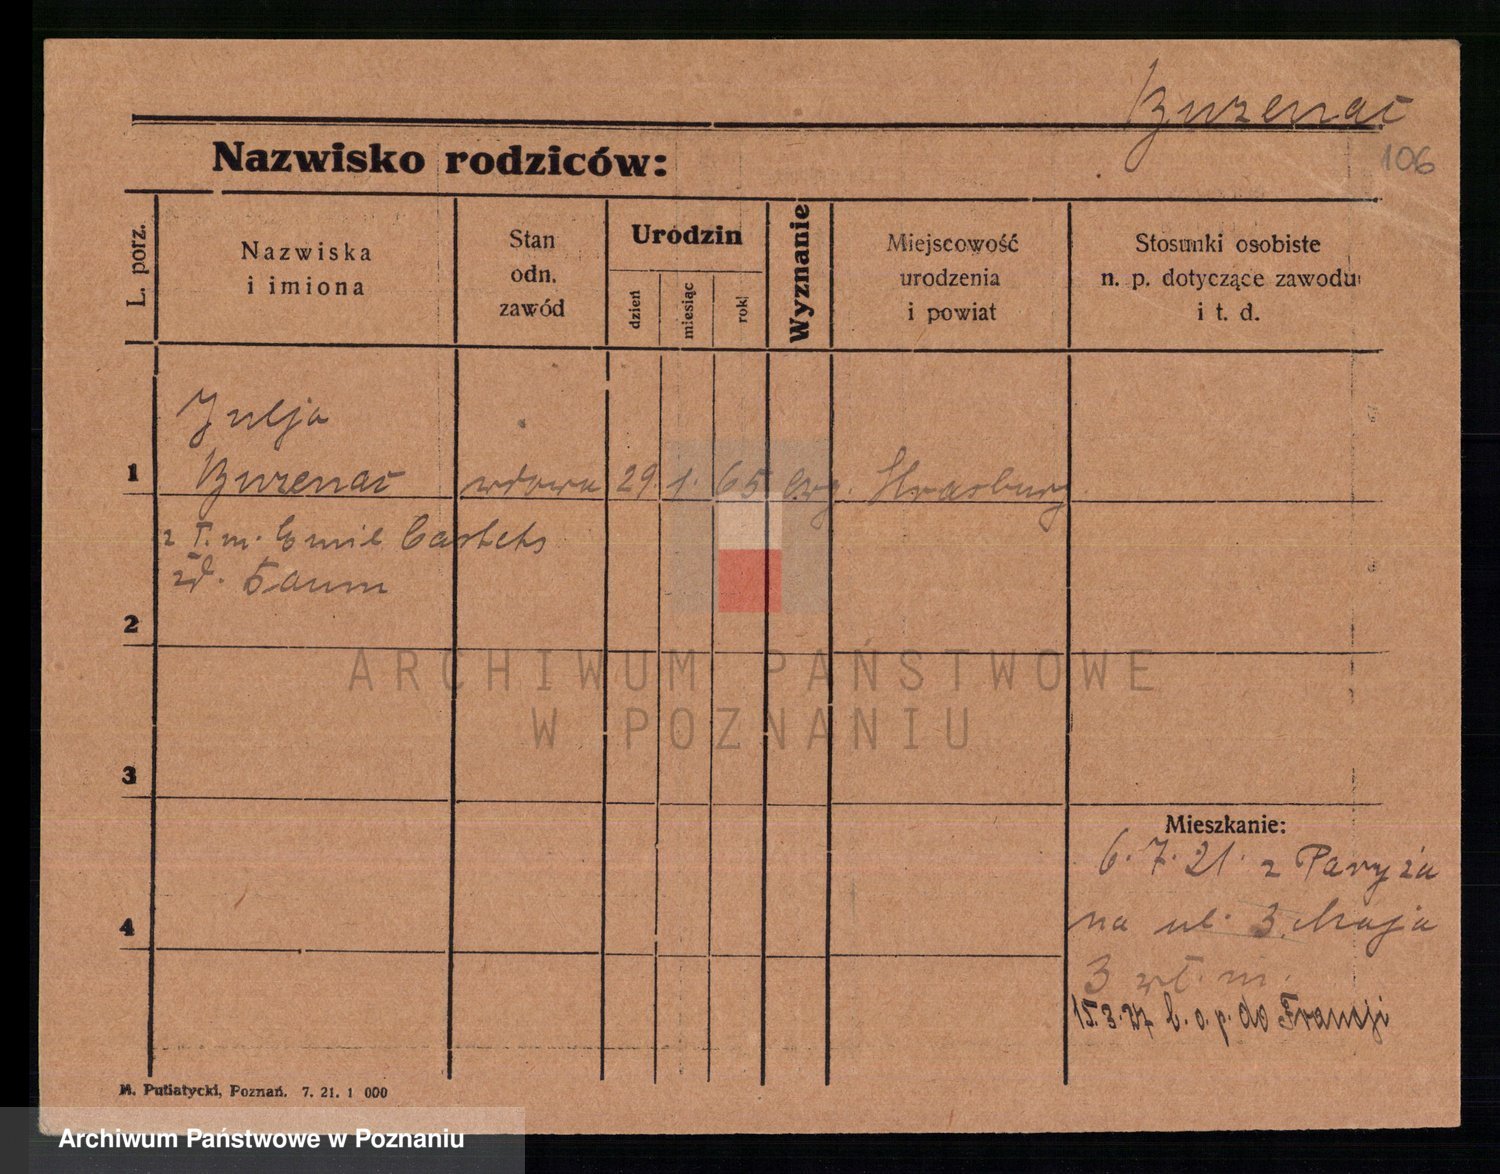 Burenac
106
Nazwisko rodziców:
L. porz.
Nazwiska
i imiona
Stan
odn.
zawód
Urodzin
dzień
miesiąc
rok
Wyznanie
Miejscowość
urodzenia
i powiat
Stosunki osobiste
n. p. dotyczące zawodu
i t. d.
Julja
1 Burenac wdowa 29 1. 65 Ewg. Strasburg
z I. m. Emil Castets
zd. Baum
2
ARCHIWUM PAŃSTWOWE
W POZNANIU
3
Mieszkanie:
6. 7. 21. z Paryża
na ul. 3. Maja
4
3 wł. m.
15.3.27 b. o. p. do Francji
M. Putiatycki, Poznań. 7. 21. 1 000
Archiwum Państwowe w Poznaniu